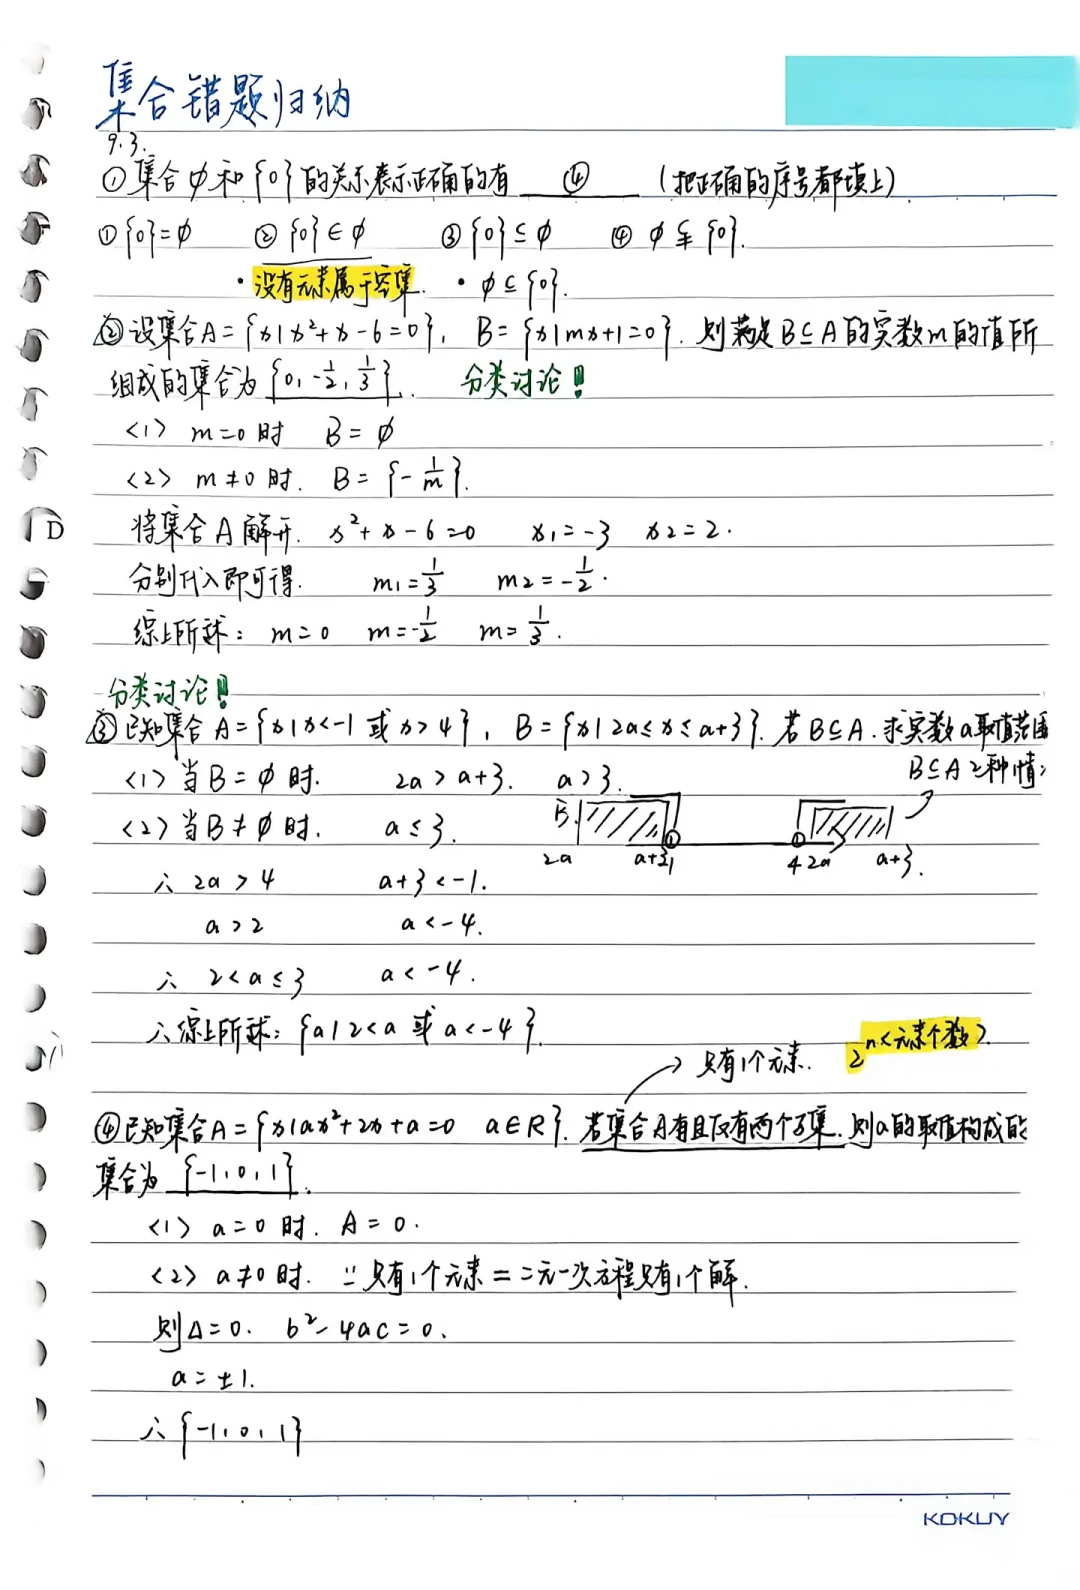 集合错题归纳
9.3.
① 集合 ∅ 和 {0} 的关系表示正确的有 ④ (把正确的序号都填上)
① {0}=∅ ② {0}∈∅ ③ {0}⊆∅ ④ ∅⫋{0}.
· 没有元素属于空集. · ∅⊆{0}.
② 设集合A={x|x²+x-6=0}, B={x|mx+1=0}. 则满足B⊆A的实数m的值所
组成的集合为 {0,-1/2,1/3}. 分类讨论!!
<1> m=0时 B=∅
<2> m≠0时. B={-1/m}.
将集合A解开. x²+x-6=0 x₁=-3 x₂=2.
分别代入即可得. m₁=1/3 m₂=-1/2.
综上所述: m=0 m=-1/2 m=1/3.
分类讨论!!
③ 已知集合A={x|x<-1或x>4}, B={x|2a≤x≤a+3}. 若B⊆A.求实数a取值范围
<1> 当B=∅时. 2a>a+3. a>3. B⊆A 2种情
<2> 当B≠∅时. a≤3. B.
2a a+3 -1 4 2a a+3.
∴ 2a>4 a+3<-1.
a>2 a<-4.
∴ 2<a≤3 a<-4.
∴综上所述: {a|2<a或a<-4}.
→ 只有1个元素. 2ⁿ<元素个数>.
④ 已知集合A={x|ax²+2x+a=0 a∈R}. 若集合A有且仅有两个子集. 则a的取值构成的
集合为 {-1,0,1}.
<1> a=0时. A=0.
<2> a≠0时. ∵只有1个元素=二元一次方程只有1个解.
则Δ=0. b²-4ac=0.
a=±1.
∴{-1,0,1}
KOKUY